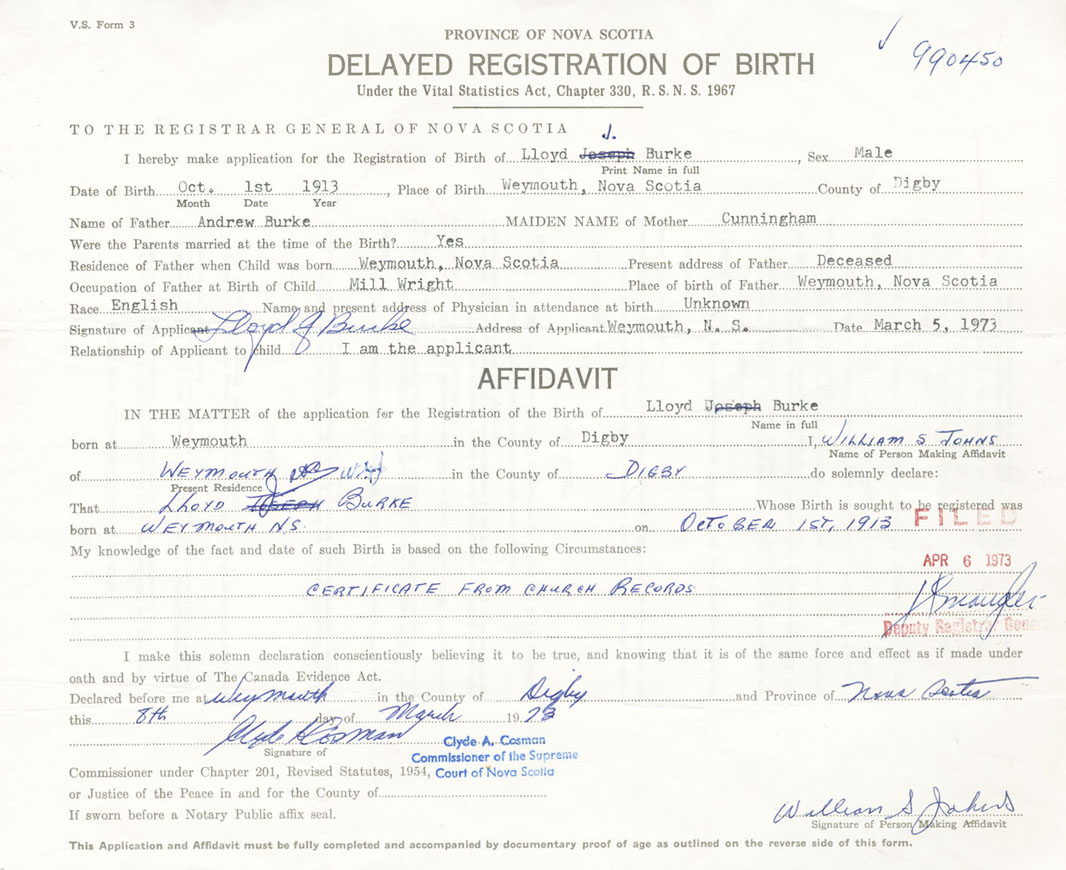 V.S. Form 3
990450
PROVINCE OF NOVA SCOTIA
DELAYED REGISTRATION OF BIRTH
Under the Vital Statistics Act, Chapter 330, R. S. N. S. 1967
TO THE REGISTRAR GENERAL OF NOVA SCOTIA
J.
I hereby make application for the Registration of Birth of Lloyd Joseph Burke, Sex Male
Print Name in full
Date of Birth Oct. 1st 1913, Place of Birth Weymouth, Nova Scotia County of Digby
Month Date Year
Name of Father Andrew Burke MAIDEN NAME of Mother Cunningham
Were the Parents married at the time of the Birth? Yes
Residence of Father when Child was born Weymouth, Nova Scotia Present address of Father Deceased
Occupation of Father at Birth of Child Mill Wright Place of birth of Father Weymouth, Nova Scotia
Race English Name and present address of Physician in attendance at birth Unknown
Signature of Applicant Lloyd J Burke Address of Applicant Weymouth, N. S. Date March 5, 1973
Relationship of Applicant to child I am the applicant
AFFIDAVIT
IN THE MATTER of the application for the Registration of the Birth of Lloyd Joseph Burke
Name in full
born at Weymouth in the County of Digby I, WILLIAM S JOHNS
Name of Person Making Affidavit
of WEYMOUTH in the County of DIGBY do solemnly declare:
Present Residence
That LLOYD JOSEPH BURKE Whose Birth is sought to be registered was
born at WEYMOUTH NS. on OCTOBER 1ST, 1913
FILED
My knowledge of the fact and date of such Birth is based on the following Circumstances:
APR 6 1973
CERTIFICATE FROM CHURCH RECORDS
Deputy Registrar General
I make this solemn declaration conscientiously believing it to be true, and knowing that it is of the same force and effect as if made under
oath and by virtue of The Canada Evidence Act.
Declared before me at Weymouth in the County of Digby and Province of Nova Scotia
this 8th day of March 1973
Clyde A Cosman
Signature of
Clyde A. Cosman
Commissioner of the Supreme
Court of Nova Scotia
Commissioner under Chapter 201, Revised Statutes, 1954,
or Justice of the Peace in and for the County of
If sworn before a Notary Public affix seal.
William S Johns
Signature of Person Making Affidavit
This Application and Affidavit must be fully completed and accompanied by documentary proof of age as outlined on the reverse side of this form.